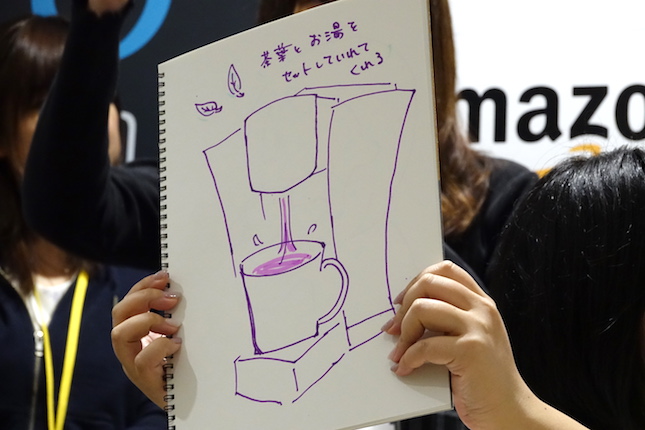 茶葉とお湯を
セットしていれて
くれる
mazo